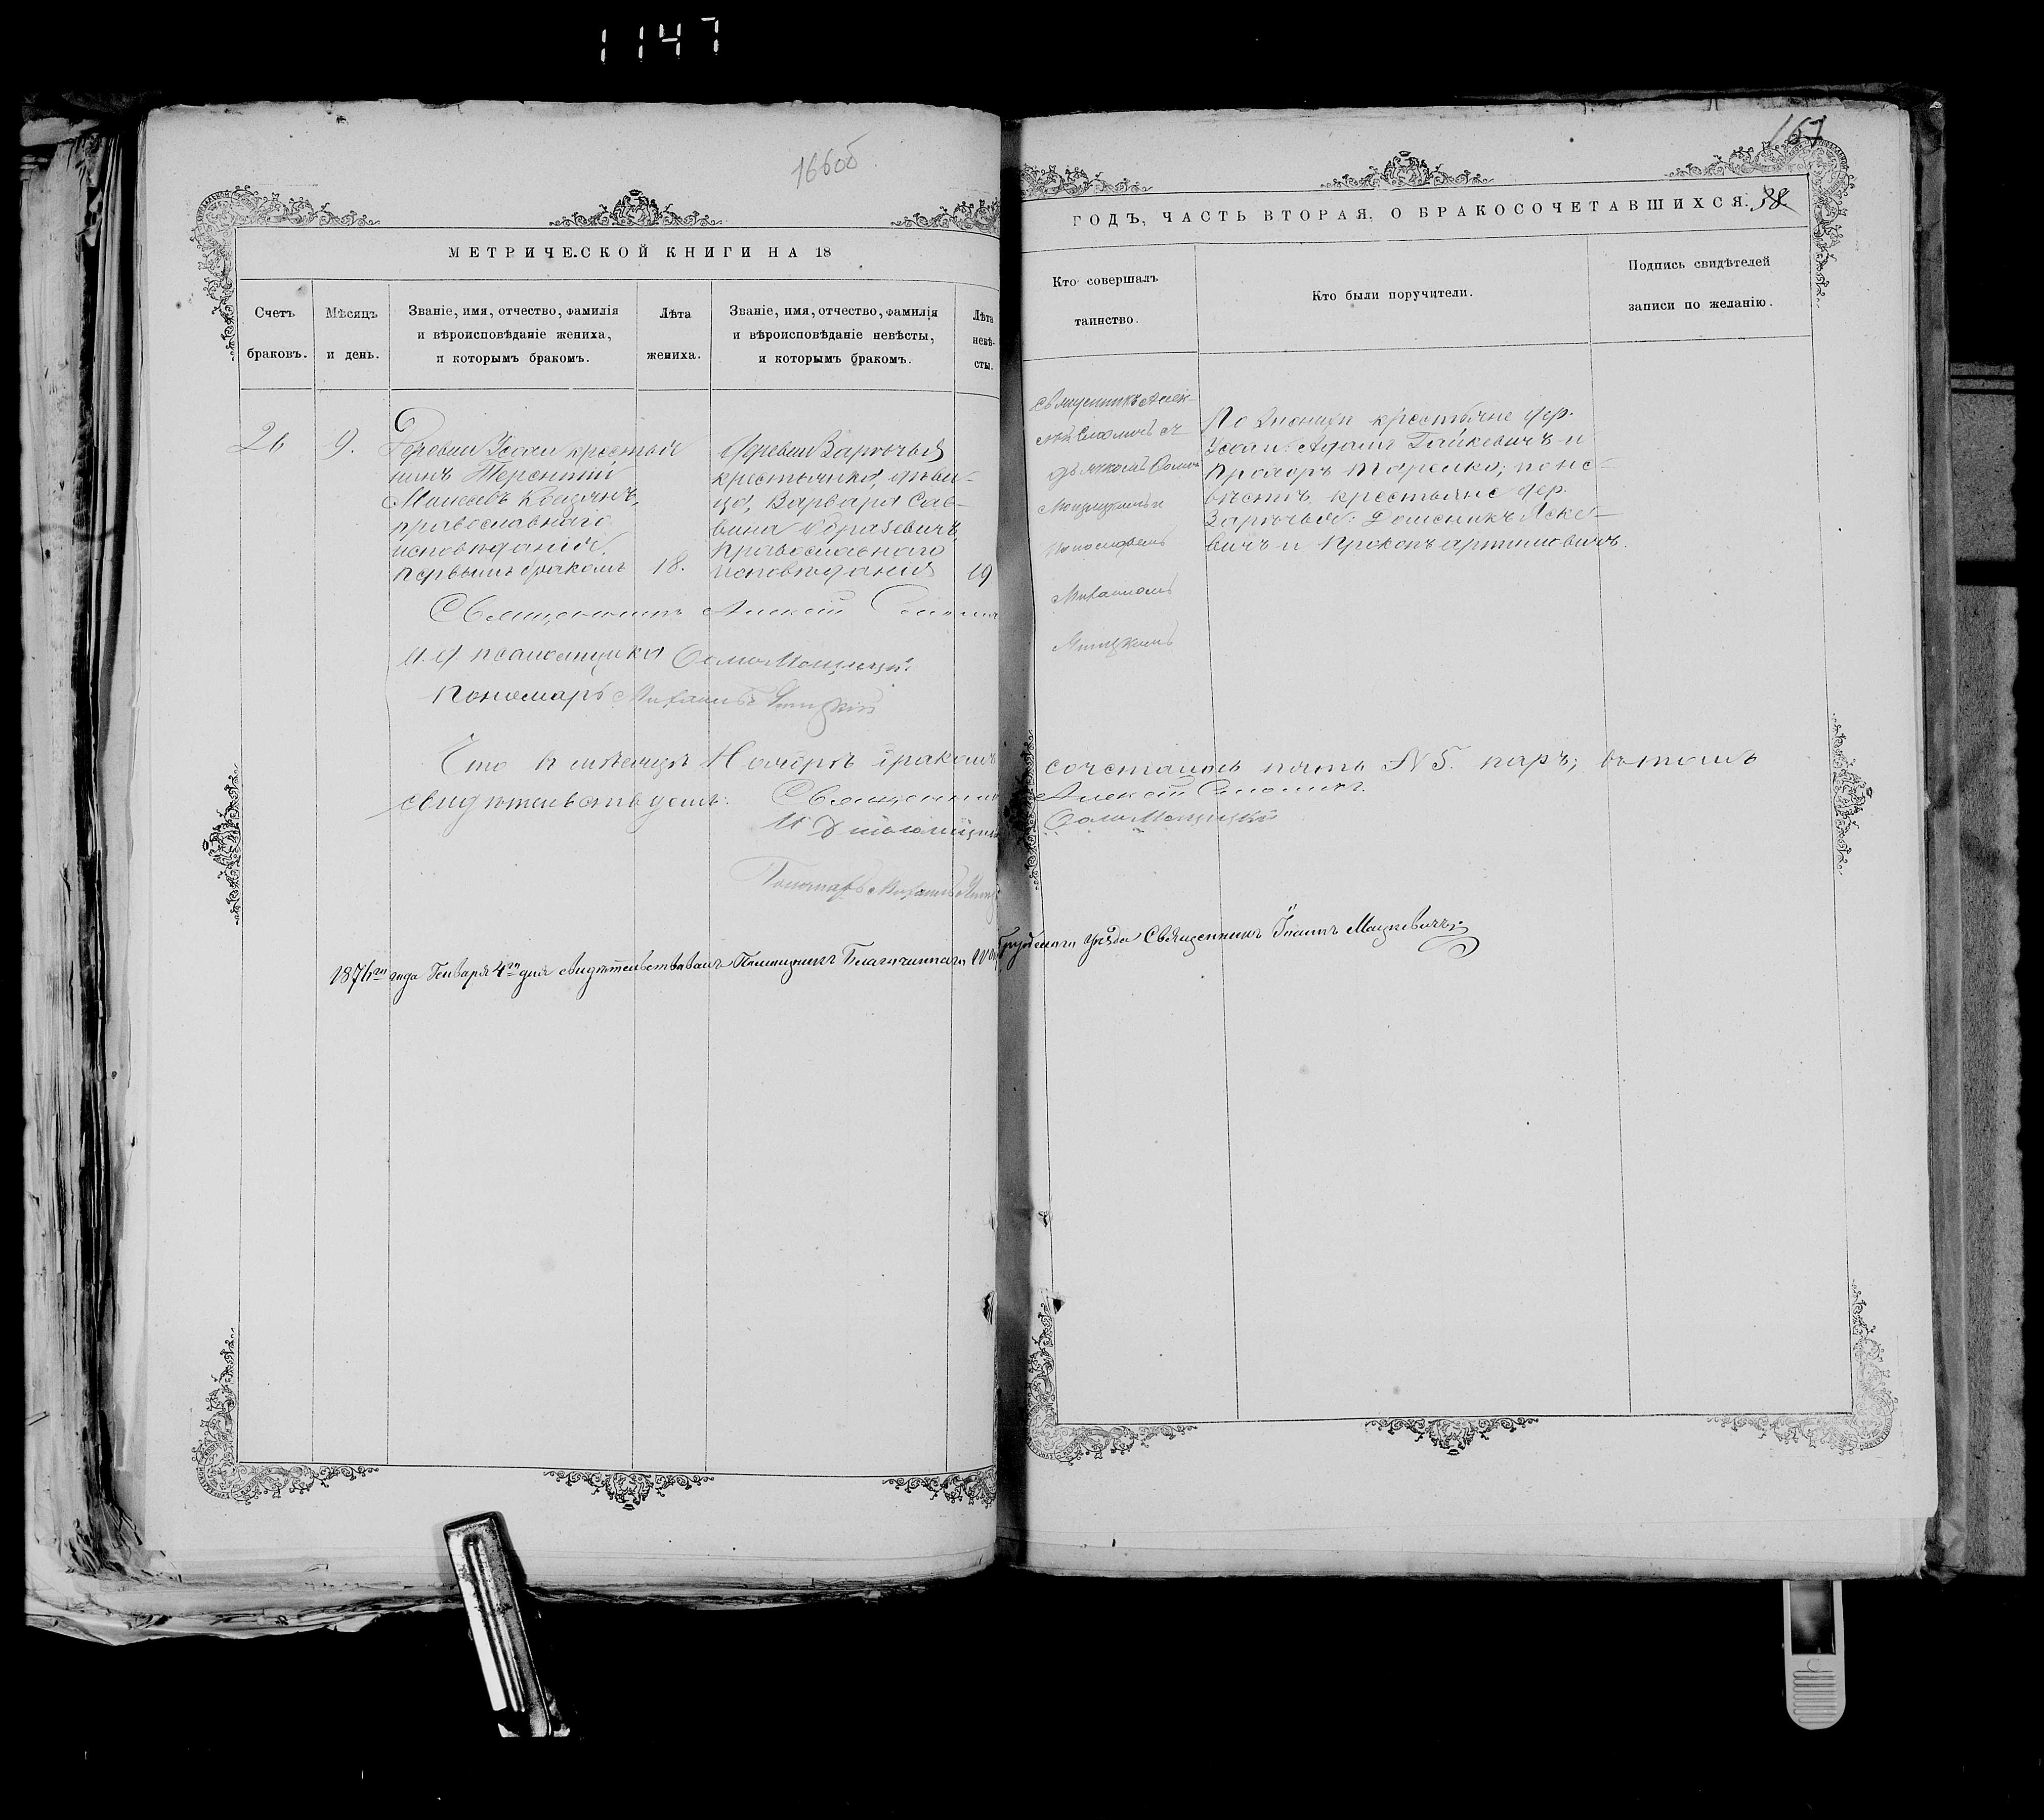 1147
166об
167
МЕТРИЧЕСКОЙ КНИГИ НА 18
ГОДЪ, ЧАСТЬ ВТОРАЯ, О БРАКОСОЧЕТАВШИХСЯ.
38
Счетъ
браковъ.
Мѣсяцъ
и день.
Званіе, имя, отчество, фамилія
и вѣроисповѣданіе жениха,
и которымъ бракомъ.
Лѣта
жениха.
Званіе, имя, отчество, фамилія
и вѣроисповѣданіе невѣсты,
и которымъ бракомъ.
Лѣта
невѣ-
сты.
Кто совершалъ
таинство.
Кто были поручители.
Подпись свидѣтелей
записи по желанію.
26
9.
Деревни Усаи крестья
нинъ Терентій
Моисеевъ
православнаго
исповѣданія.
Первымъ бракомъ
18.
Деревни Заречья
крестьянка, дѣви-
ца, Варвара Сав-
вина
Православнаго
исповѣданія
19
Священникъ Алек-
сѣй съ
Михаиломъ
По женихѣ крестьяне дер.
Усаи: Адамъ Гайкевичъ и
Прохоръ по не-
вѣстѣ крестьяне дер.
Заречья:
вичъ и Прокопъ
Священникъ Алексѣй
И. д. псаломщика
Пономарь Михаилъ
Что въ мѣсяцѣ Ноябрѣ бракомъ сочеталось пять №5. паръ; въ томъ
свидѣтельствуемъ: Священникъ Алексѣй
И Д псаломщика
Пономарь Михаилъ
1876го года Генваря 4го дня свидѣтельствовалъ Помощникъ Благочиннаго уѣзда Священникъ Іоаннъ Мацкевичъ